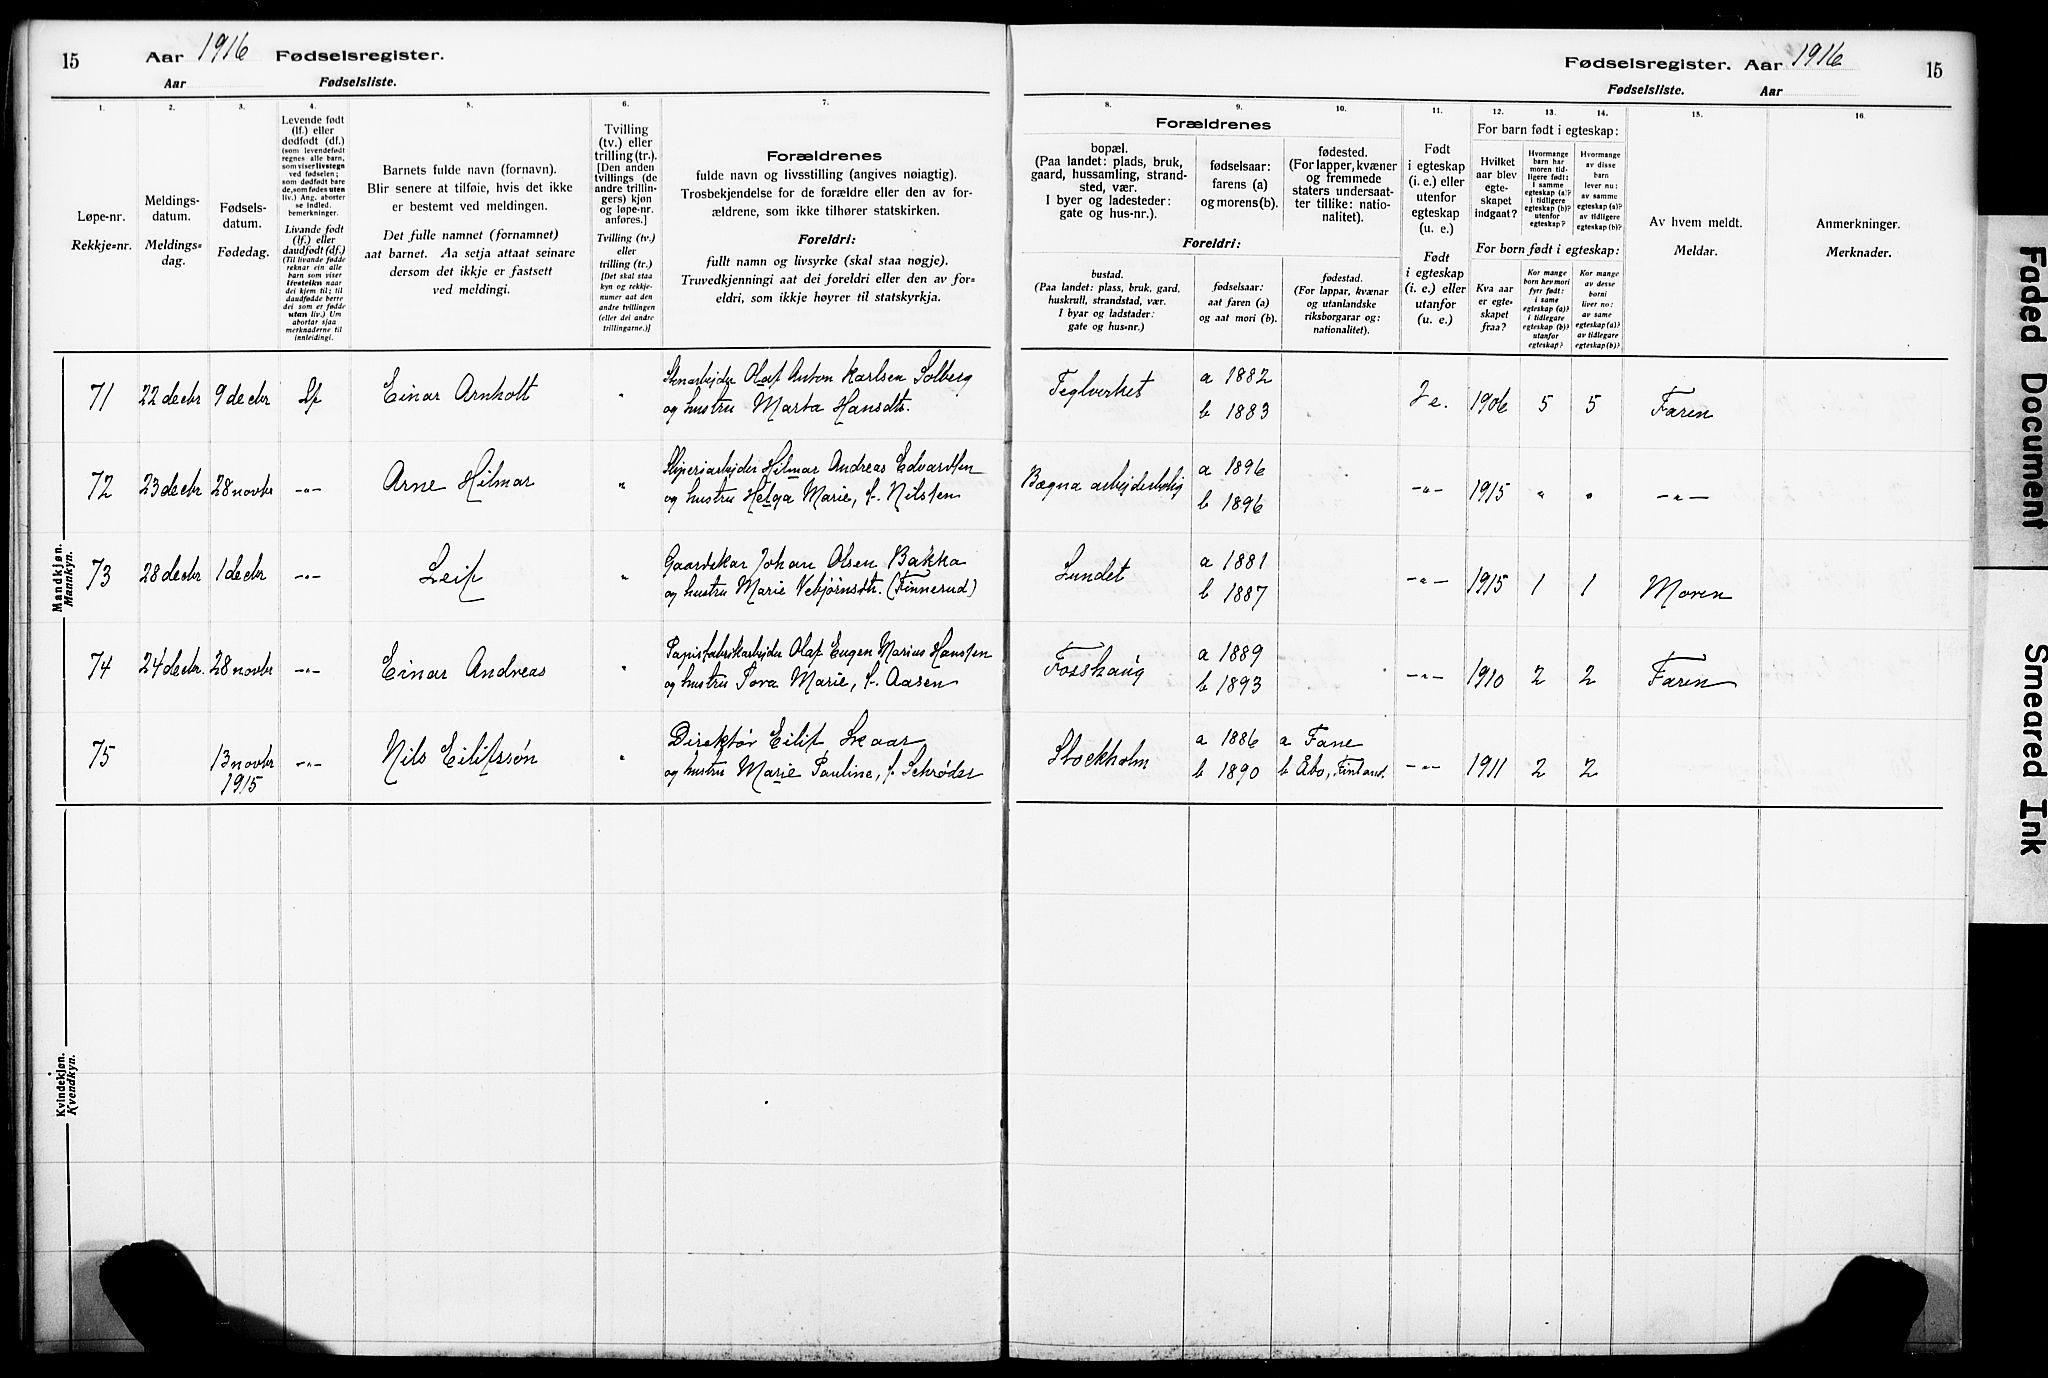 15 Aar 1916 Fødselsregister.
Aar Fødselsliste.
Fødselsregister. Aar 1916 15
Fødselsliste. Aar
1.
Løpe-nr.
Rekkje=nr.
2.
Meldings-
datum.
Meldings=
dag.
3.
Fødsels-
datum.
Fødedag.
4.
Levende født
(lf.) eller
dødfødt (df.)
(som levendefødt
regnes alle barn,
som viser livstegn
ved fødselen;
som dødfødt bare
de, som fødes uten
liv.) Ang. aborter
se indled.
bemerkninger.
Livande født
(lf.) eller
daudfødt (df.)
(Til livande fødde
reknar ein alle
born som viser
livsteikn naar
dei kjem til; til
daudfødde berre
dei som er fødde
utan liv.) Um
abortar sjaa
merknaderne til
innleidingi.
5.
Barnets fulde navn (fornavn).
Blir senere at tilføie, hvis det ikke
er bestemt ved meldingen.
Det fulle namnet (fornamnet)
aat barnet. Aa setja attaat seinare
dersom det ikkje er fastsett
ved meldingi.
6.
Tvilling
(tv.) eller
trilling (tr.).
[Den anden
tvillings (de
andre trillin-
gers) kjøn
og løpe-nr.
anføres.]
Tvilling (tv.)
eller
trilling (tr.)
[Det skal staa
kyn og rekkje-
numer aat den
andre tvillingen
(eller dei andre
trillingarne.)]
7.
Forældrenes
fulde navn og livsstilling (angives nøiagtig).
Trosbekjendelse for de forældre eller den av for-
ældrene, som ikke tilhører statskirken.
Foreldri:
fullt namn og livsyrke (skal staa nøgje).
Truvedkjenningi aat dei foreldri eller den av for=
eldri, som ikkje høyrer til statskyrkja.
Forældrenes
8.
bopæl.
(Paa landet: plads, bruk,
gaard, hussamling, strand-
sted, vær.
I byer og ladesteder:
gate og hus-nr.).
9.
fødselsaar:
farens (a)
og morens (b).
10.
fødested.
(For lapper, kvæner
og fremmede
staters undersaat-
ter tillike: natio-
nalitet).
Foreldri:
bustad.
(Paa landet: plass, bruk, gard,
huskrull, strandstad, vær.
I byar og ladstader:
gate og hus=nr.)
fødselsaar:
aat faren (a)
og aat mori (b).
fødestad.
(For lappar, kvænar
og utanlandske
riksborgarar og:
nationalitet).
11.
Født
i egteskap
(i. e.) eller
utenfor
egteskap
(u. e.)
Født
i egteskap
(i. e.) eller
utanfor
(u. e.)
For barn født i egteskap:
12.
Hvilket
aar blev
egte-
skapet
indgaat?
13.
Hvormange
barn har
moren tid-
ligere født:
I samme
egteskap (a)?
i tidligere
egteskap (b)?
utenfor
egteskap?
14.
Hvormange
av disse
barn
lever nu:
av samme
egteskap (a)?
av tidligere
egteskap (b)?
For born født i egteskap:
Kva aar
er egte=
skapet
fraa?
Kor mange
born hev mori
fyrr født:
i same
egteskap (a)?
i tidlegare
egteskap (b)?
utanfor
egteskap?
Kor mange
av desse
borni
liver no:
av same
egteskap (a)?
av tidlegare
egteskap (b)?
15.
Av hvem meldt.
Meldar.
16.
Anmerkninger.
Merknader.
Mandkjøn.
Mannkyn.
71 22 decbr 9 decbr Lf Einar Arnholt " Stenarbejder Olaf Anton Karlsen Solberg
og hustru Marta Hansdtr. Teglverket a 1882
b 1883 I e. 1906 5 5 Faren
72 23 decbr 28 novbr -"- Arne Hilmar " Sliperiarbejder Hilmar Andreas Edvardsen
og hustru Helga Marie, f. Nilsen Bægna arbejderbolig a 1896
b 1896 -"- 1915 " " -"-
73 28 decbr 1 decbr -"- Leif " Gaardskar Johan Olsen Bakka
og hustru Marie Vebjørnsdtr. (Finnerud) Lundet a 1881
b 1887 -"- 1915 1 1 Moren
74 24 decbr. 28 novbr -"- Einar Andreas " Papirfabrikarbejder Olaf Eugen Marius Hansen
og hustru Tora Marie, f. Aasen Fosshaug a 1889
b 1893 -"- 1910 2 2 Faren
75 13 novbr
1915 -"- Nils Eilifssøn " Direktør Eilif Skaar
og hustru Marie Pauline, f. Schrøder Stockholm a 1886 a Fane
b 1890 b Åbo, Finland. -"- 1911 2 2
Kvindekjøn.
Kvendkyn.
Faded Document
Smeared Ink